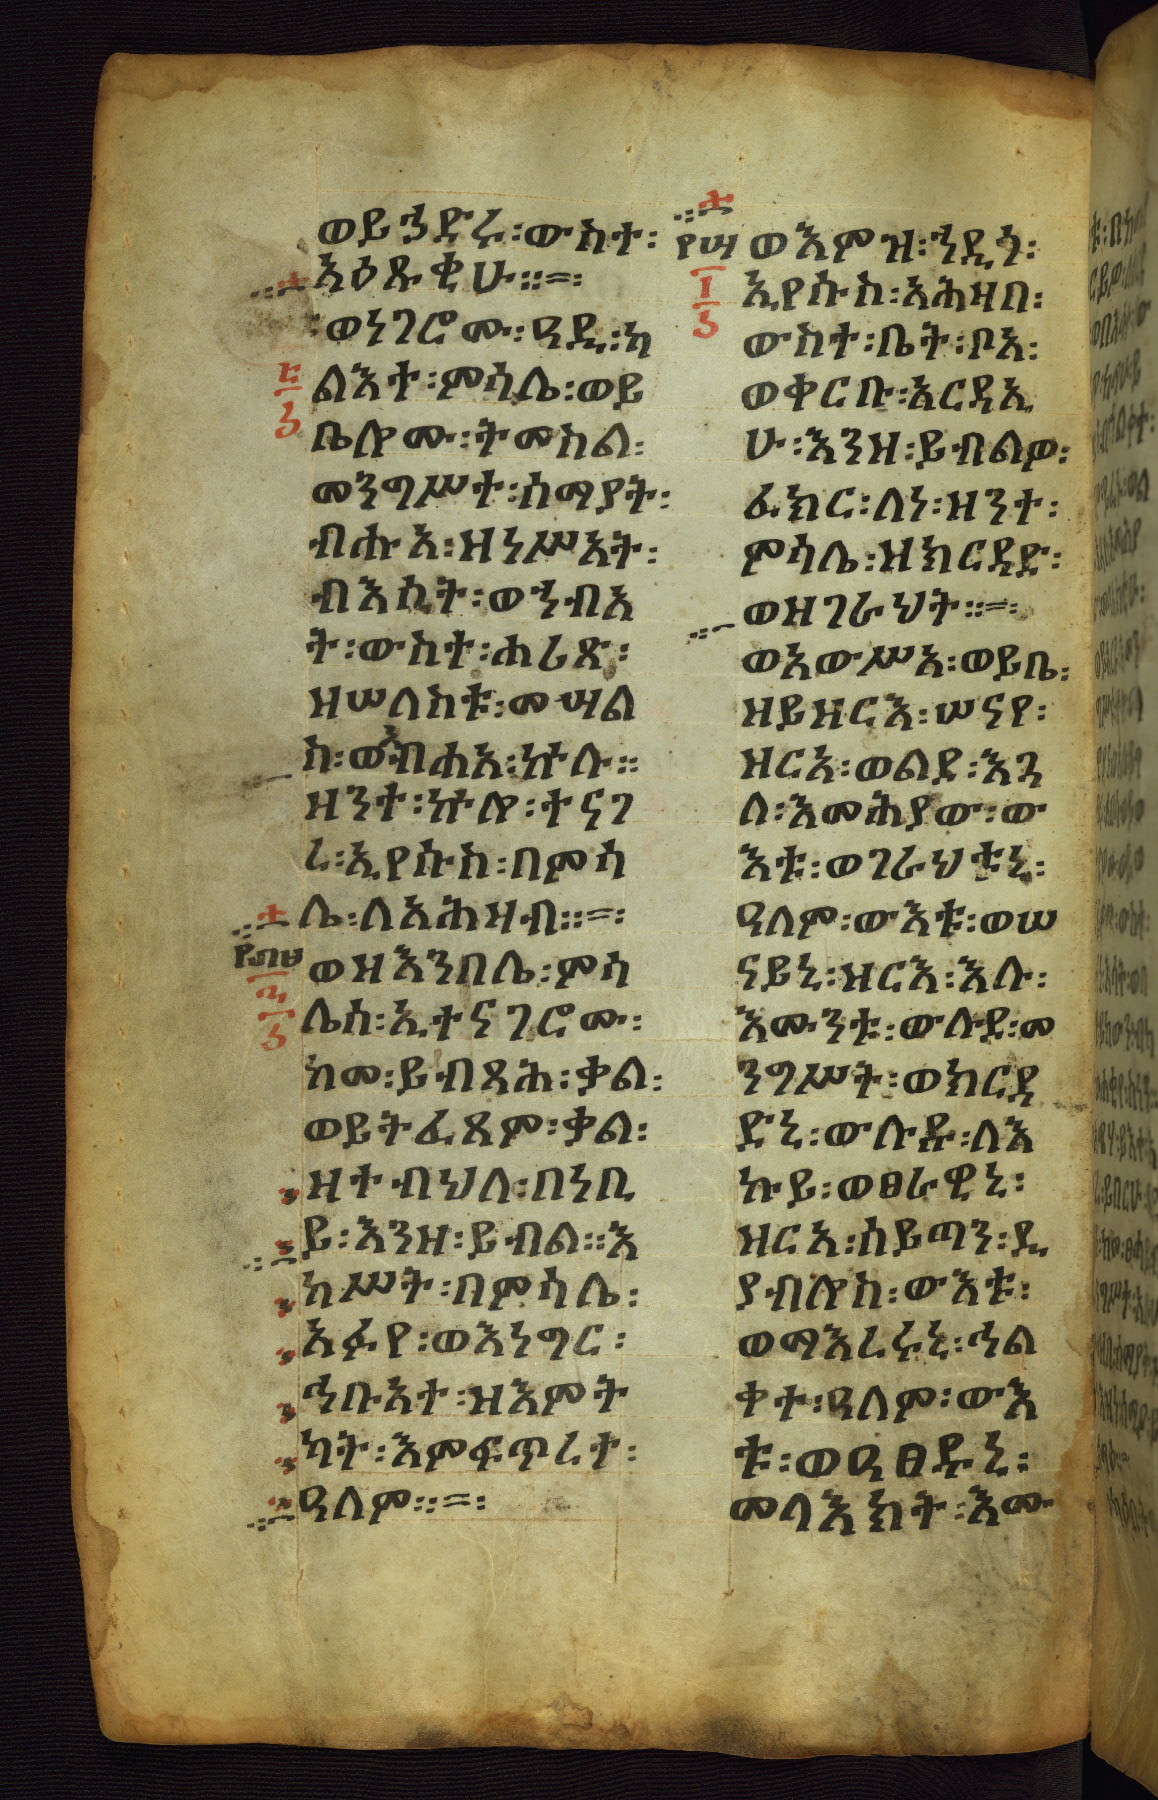 ወይኀድሩ፡ውስተ፡
አዕጹቂሁ፡፡=፡
ወነገሮሙ፡ዓዲ፡ካ
ልእተ፡ምሳሌ፡ወይ
ቤሎሙ፡ትመስል፡
መንግሥተ፡ሰማያት፡
ብሑአ፡ዘነሥአት፡
ብእሲት፡ወኀብአ
ት፡ውስተ፡ሐሪጽ፡
ዘሠለስቱ፡መሣል
ስ፡ወአብሐአ፡ኵሉ፡፡
ዘንተ፡ኵሎ፡ተናገ
ረ፡ኢየሱስ፡በምሳ
ሌ፡ለአሕዛብ፡፡=፡
ወዘእንበሌ፡ምሳ
ሌሰ፡ኢተናገሮሙ፡
ከመ፡ይብጻሕ፡ቃል፡
ወይትፈጸም፡ቃል፡
ዘተብህለ፡በነቢ
ይ፡እንዘ፡ይብል፡፡እ
ከሥት፡በምሳሌ፡
አፉየ፡ወእነግር፡
ኅቡአተ፡ዘእምት
ካት፡እምፍጥረተ፡
ዓለም፡፡=፡
ወእምዝ፡ኀዲጎ፡
ኢየሱስ፡አሕዛበ፡
ውስተ፡ቤት፡ቦአ፡
ወቀርቡ፡አርዳኢ
ሁ፡እንዘ፡ይብልዎ፡
ፈክር፡ለነ፡ዘንተ፡
ምሳሌ፡ዝክርዳድ፡
ወዘገራህት፡፡=፡
ወአውሥአ፡ወይቤ፡
ዘይዘርእ፡ሠናየ፡
ዝርአ፡ወልደ፡እጓ
ለ፡እመሕያው፡ው
እቱ፡ወገራህቱኒ፡
ዓለም፡ውእቱ፡ወሠ
ናይኒ፡ዝርእ፡እሉ፡
እሙንቱ፡ውሉደ፡መ
ንግሥት፡ወክርዳ
ድኒ፡ውሉዱ፡ለእ
ኩይ፡ወፀራዊኒ፡
ዝርአ፡ሰይጣን፡ዲ
ያብሎስ፡ውእቱ፡
ወማእረሩኒ፡ኅል
ቀተ፡ዓለም፡ውእ
ቱ፡ወዓፀድኒ፡
መላእክት፡እሙ